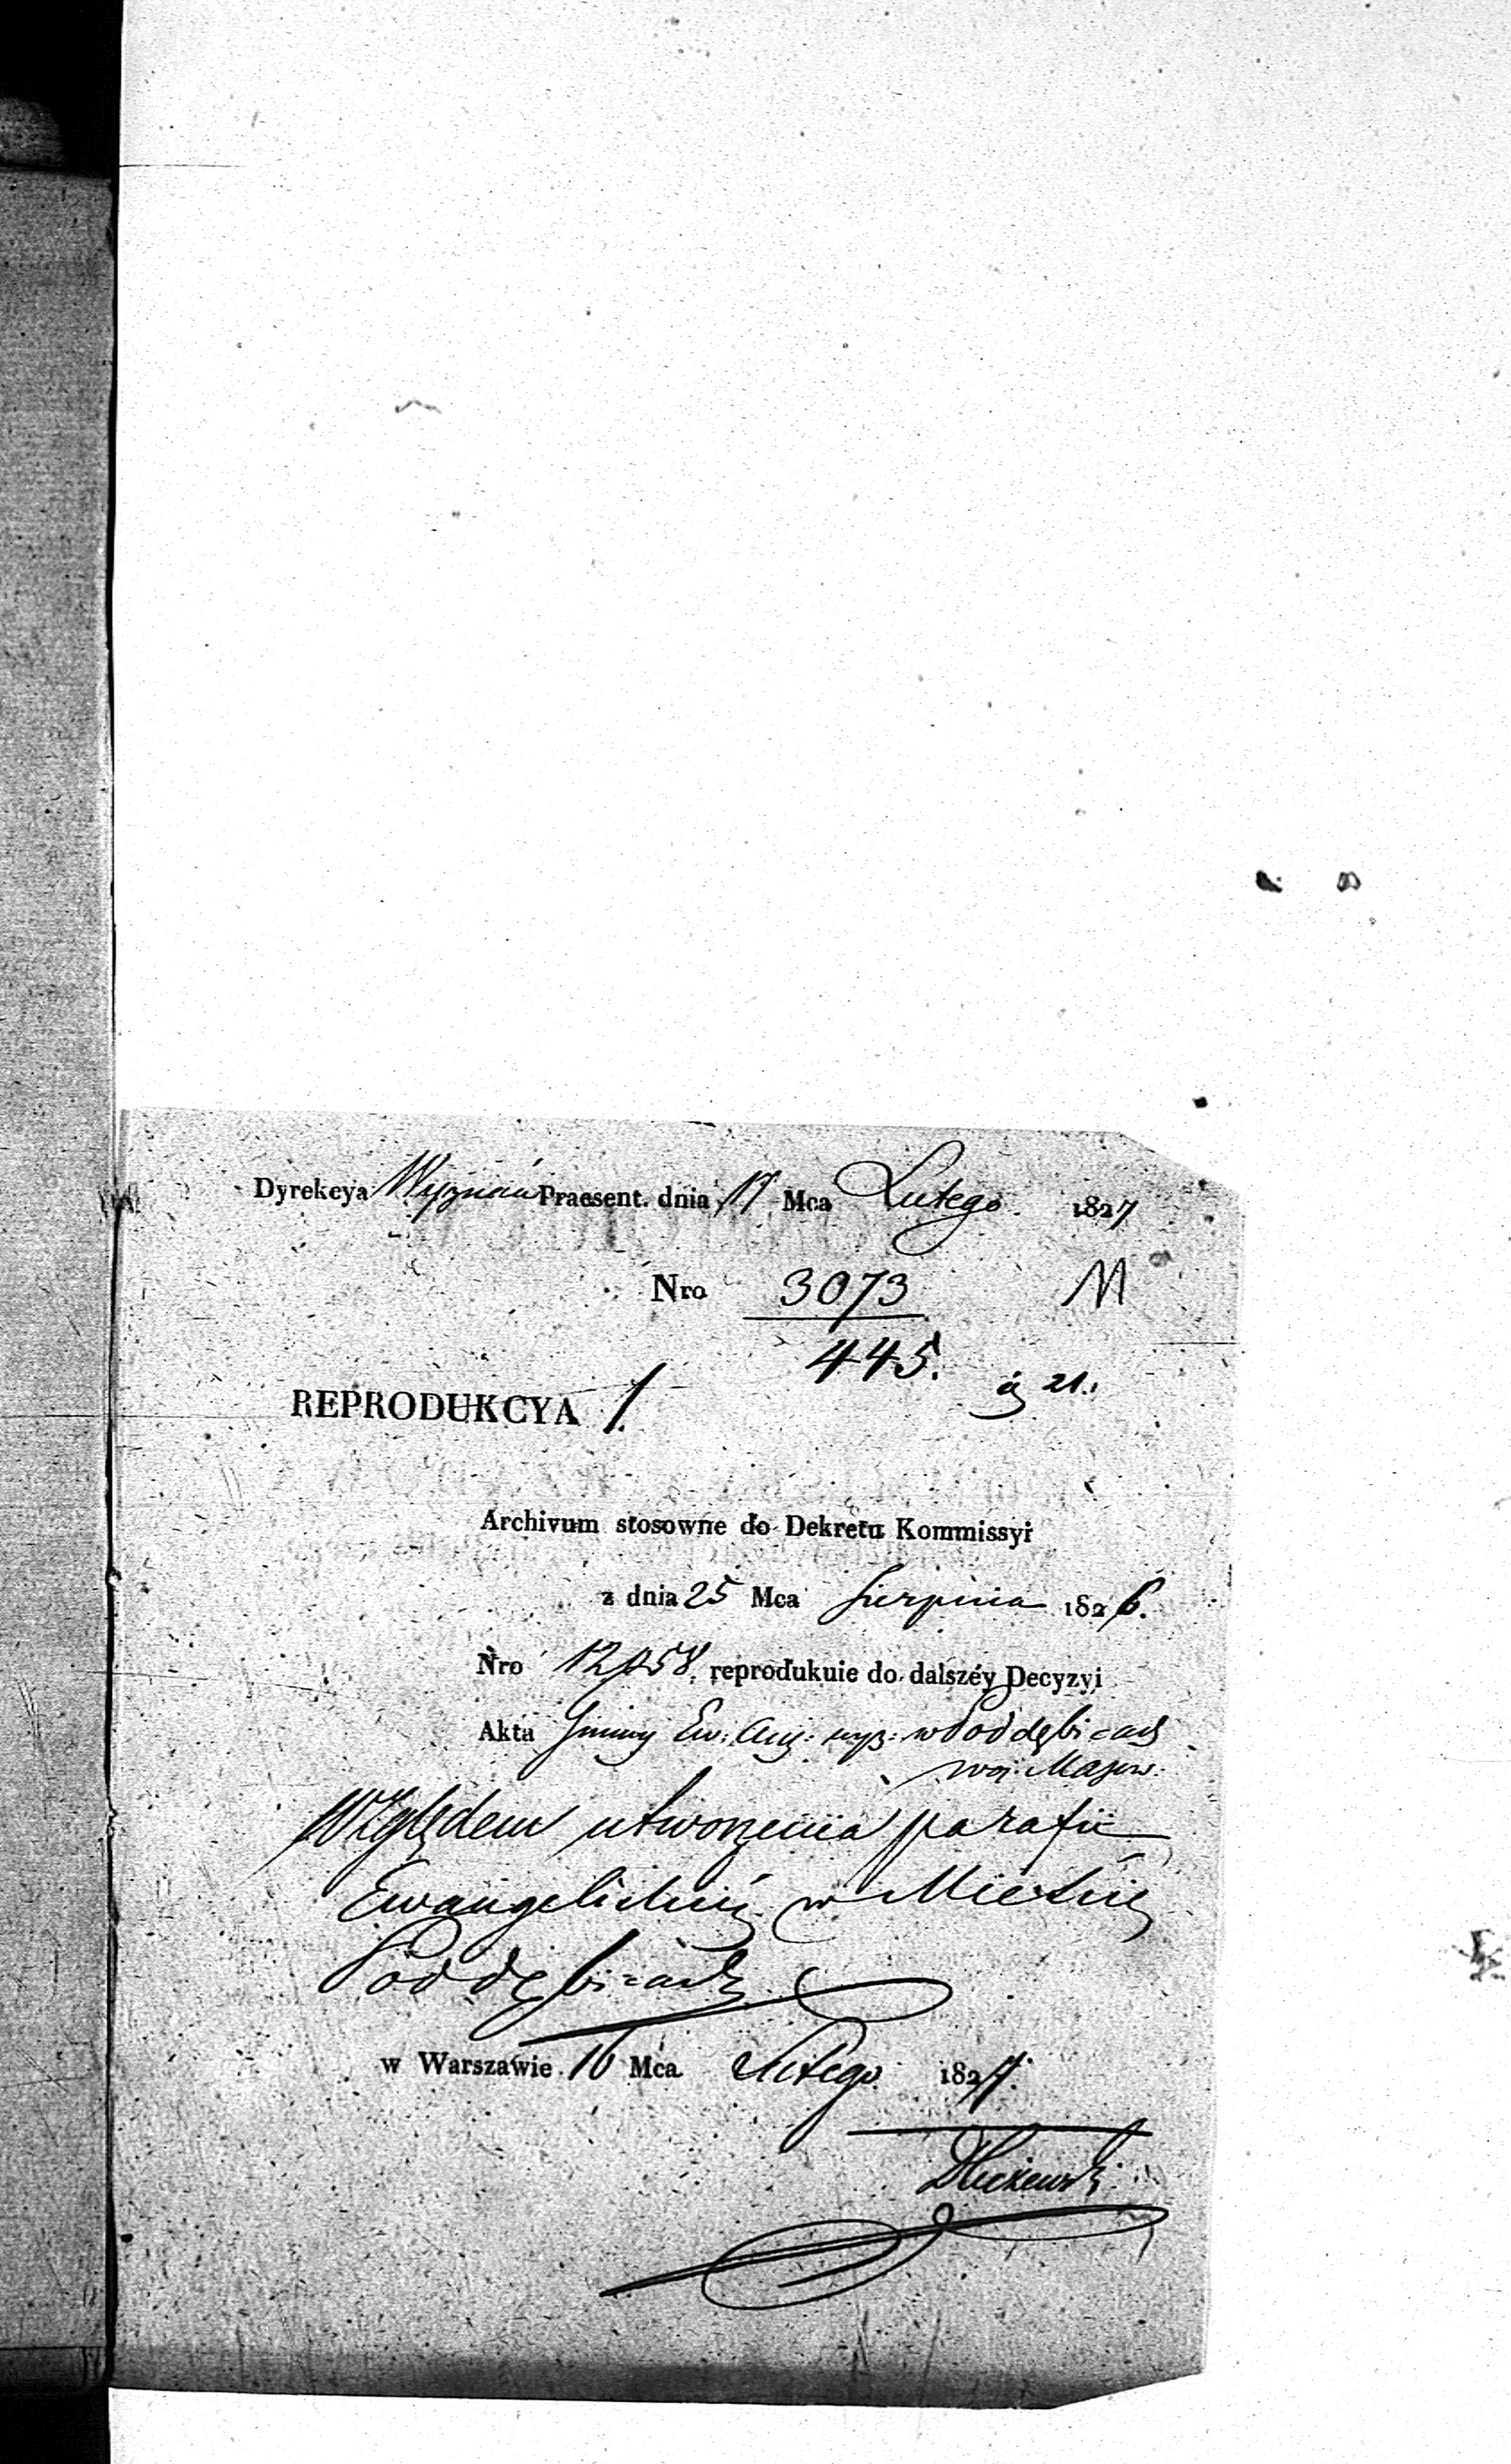 Dyrekcya Wyznań Praesent. dnia 17 Mca Lutego 1827
Nro 3073 M
445.
21.
REPRODUKCYA 1.
Archivum stosowne do Dekretu Kommissyi
z dnia 25 Mca Sierpnia 1826.
Nro reprodukuie do dalszéy Decyzyi
Akta Gminy Ew: Aug: wyz: w Poddębicach
woj: Mazow:
Względem utworzenia parafii
Ewangelickiéy w Mieście
Poddębicach
w Warszawie 16 Mca Lutego 1827.